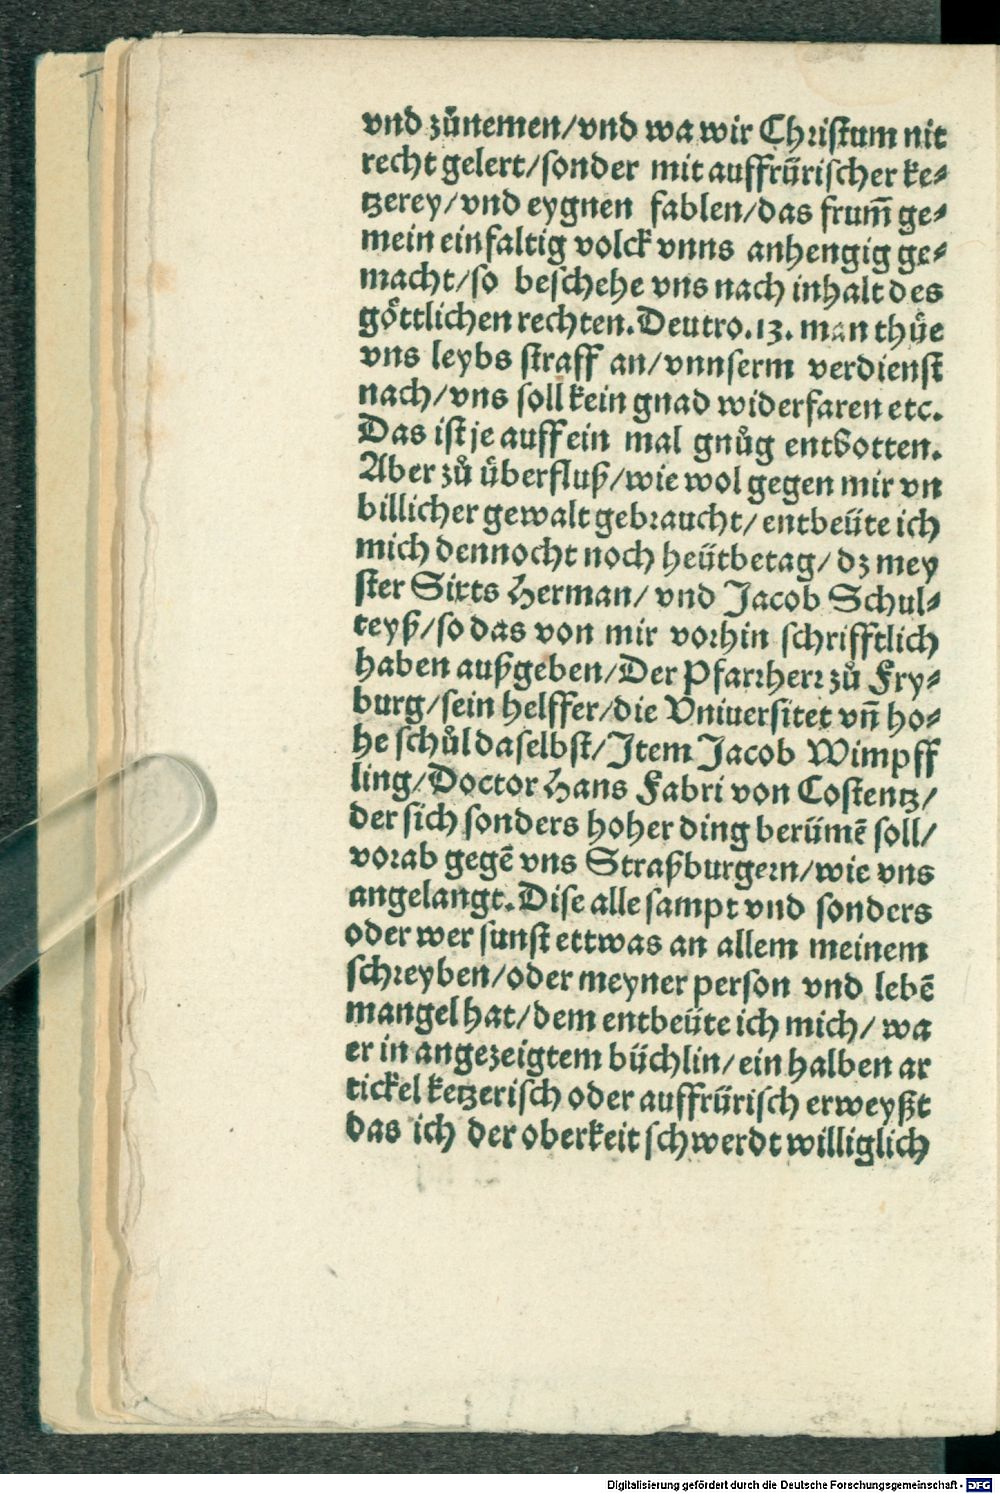 vnd zůnemen/vnd wa wir Christum nit
recht gelert/sonder mit auffrürischer ke⸗
tzerey/vnd eygnen fablen/das frum̄ ge⸗
mein einfaltig volck vnns anhengig ge⸗
macht/so beschehe vns nach inhalt des
göttlichen rechten.Deutro.13.man thüe
vns leybs straff an/vnnserm verdienst
nach/vns soll kein gnad widerfaren etc.
Das ist je auff ein mal gnůg entbotten.
Aber zů überfluß/wie wol gegen mir vn
billicher gewalt gebraucht/entbeüte ich
mich dennocht noch heütbetag/dz mey
ster Sixts Herman/vnd Jacob Schul⸗
teyß/so das von mir vorhin schrifftlich
haben außgeben/Der Pfarrherr zů Fry⸗
burg/sein helffer/die Vniuersitet vn̄ ho⸗
he schůl daselbst/Item Jacob Wimpff
ling/Doctor Hans Fabri von Costentz/
der sich sonders hoher ding berümē soll/
vorab gegē vns Straßburgern/wie vns
angelangt.Dise alle sampt vnd sonders
oder wer sunst ettwas an allem meinem
schreyben/oder meyner person vnd lebē
mangel hat/dem entbeüte ich mich/wa
er in angezeigtem büchlin/ein halben ar
tickel ketzerisch oder auffrürisch erweyßt
das ich der oberkeit schwerdt williglich
Digitalisierung gefördert durch die Deutsche Forschungsgemeinschaft - DFG